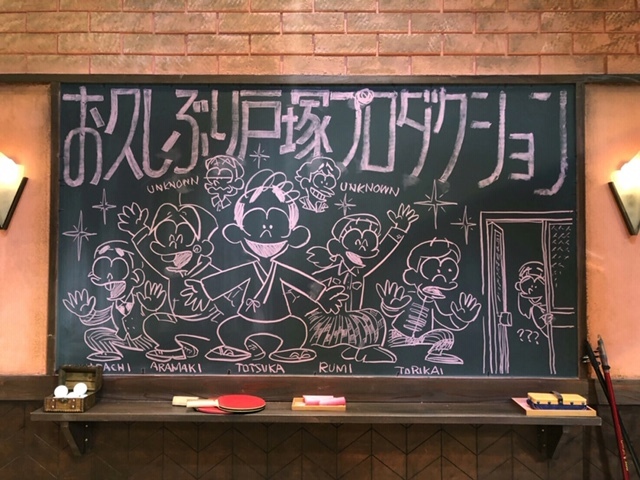 お久しぶり戸塚プロダクション
UNKNOWN UNKNOWN
ARAMAKI TOTSUKA RUMI TORIKAI
???